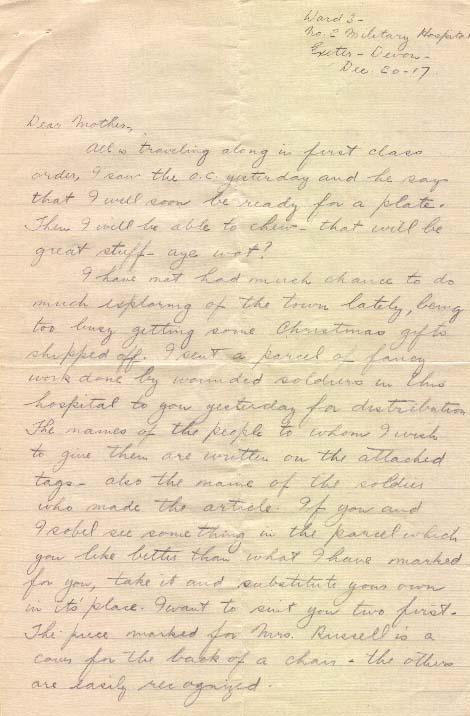 Ward 3 -
No. 2 Military Hospital
Exeter - Devon -
Dec. 20 - 17.
Dear Mother,
All is traveling along in first class
order, I saw the O.C. yesterday and he says
that I will soon be ready for a plate.
Then I will be able to chew - that will be
great stuff - aye wot?
I have not had much chance to do
much explaring of the town lately, being
too busy getting some Christmas gifts
shipped off. I sent a parcel of fancy
work done by wounded soldiers in this
hospital to you yesterday for distribution
The names of the people to whom I wish
to give them are written on the attached
tags - also the name of the soldier
who made the article. If you and
Isobel see something in the parcel which
you like better than what I have marked
for you, take it and substitute yours own
in it's place. I want to suit you two first.
The piece marked for Mrs. Russell is a
cover for the back of a chair - the others
are easily recognized.